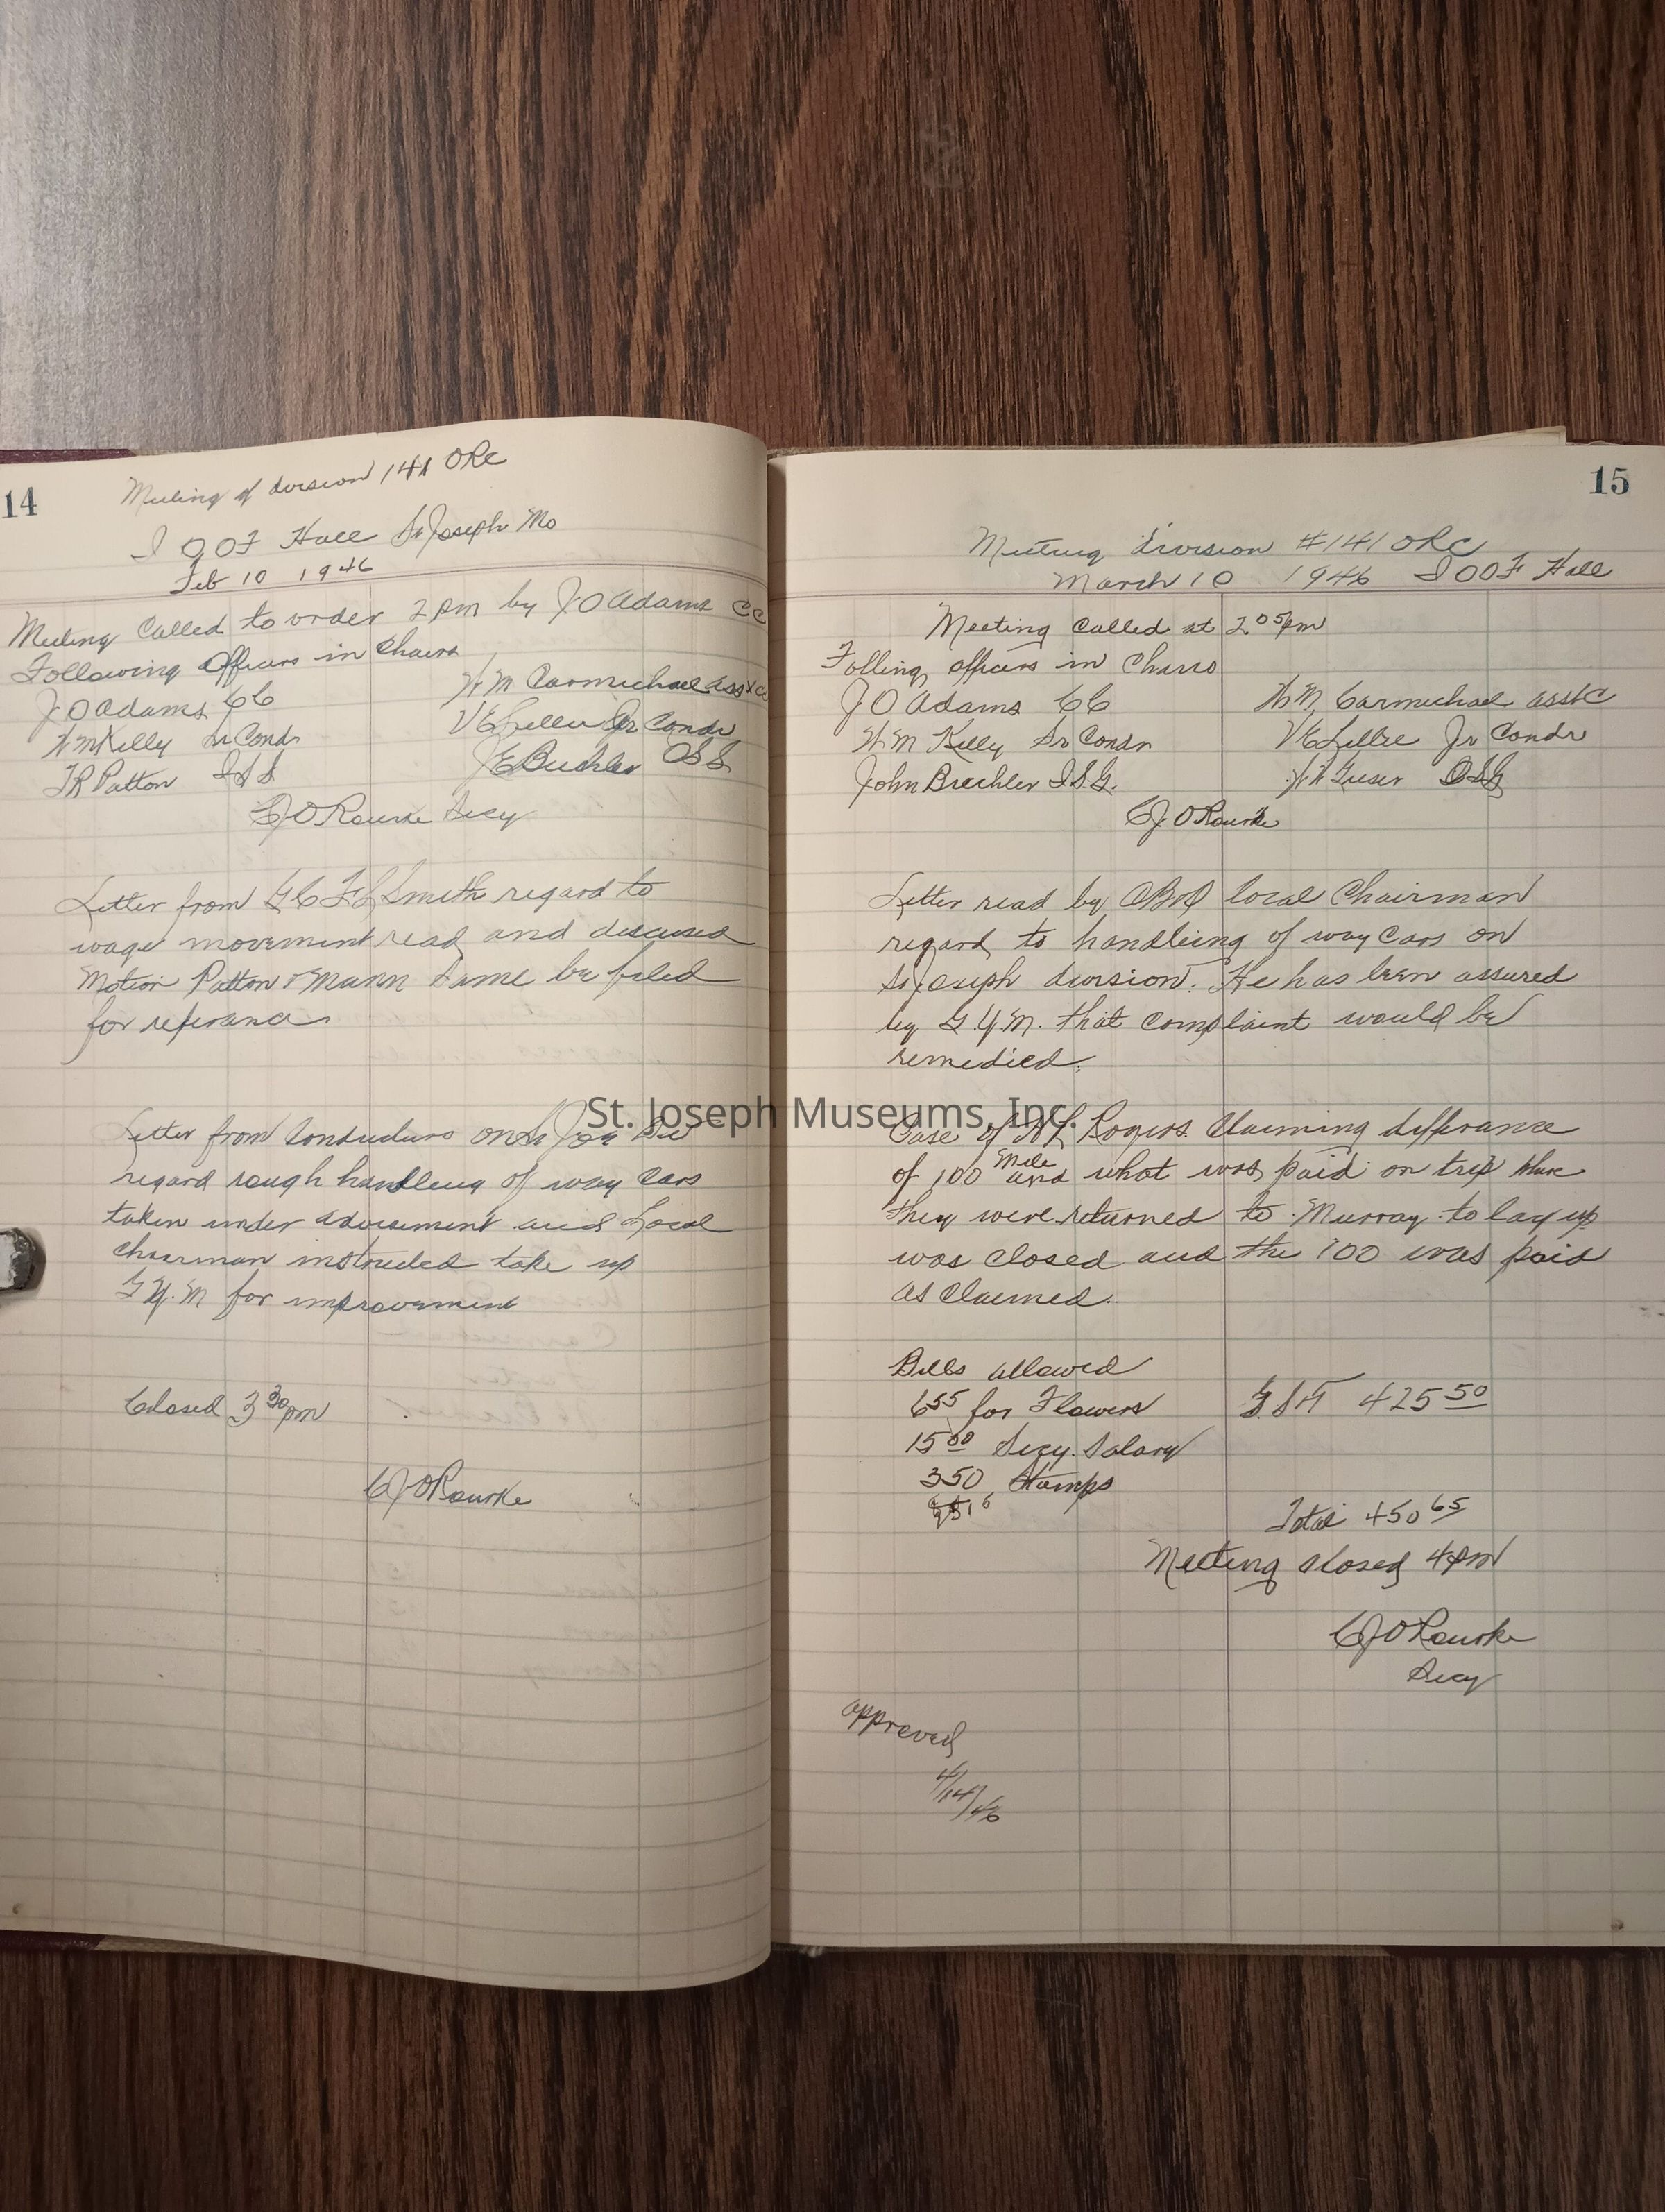 14
Meeting of division 141 ORC
I OOF Hall St Joseph Mo
Feb 10 1946
Meeting Called to order 2 pm by J O Adams CC
Following Officers in Chairs
J O Adams CC W M Carmichael asst C
W M Kelly Sr Condr V E Lillie Jr Condr
T R Patton I S S J E Buchler O S S
C J O Rourke Secy
Letter from G C F L Smith regard to
wage movement read and discused
Motion Patton & Mann Same be filed
for referance
Letter from Conductors on St Joe Div
regard rough handleng of way cars
taken under advisement and Local
Chairman instructed take up
G Y.M for improvement
Closed 3 30 pm
C J O Rourke
15
Meeting division #141 ORC
March 10 1946 I OOF Hall
Meeting Called at 2 05 pm
Folling officers in Chairs
J O Adams CC W M Carmichael asst C
W M Kelly Sr Condr V E Lillie Jr Condr
John Buchler I S G. O S G
C J O Rourke
Letter read by local Chairman
regard to handleing of way Cars on
St Joseph division. He has been assured
by G. Y. M. that complaint would be
remedied.
Case of Rogers Claiming differance
of 100 Mile and what was paid on trip where
they were returned to Murray to lay up
was closed and the 100 was paid
as Claimed.
Bills allowed
6 55 for Flowers 425 50
15 00 Secy. Salary
3 50 Stamps
Total 450 65
Meeting closed 4 pm
C J O Rourke
Secy
approved
4/14/46
St. Joseph Museums, Inc.